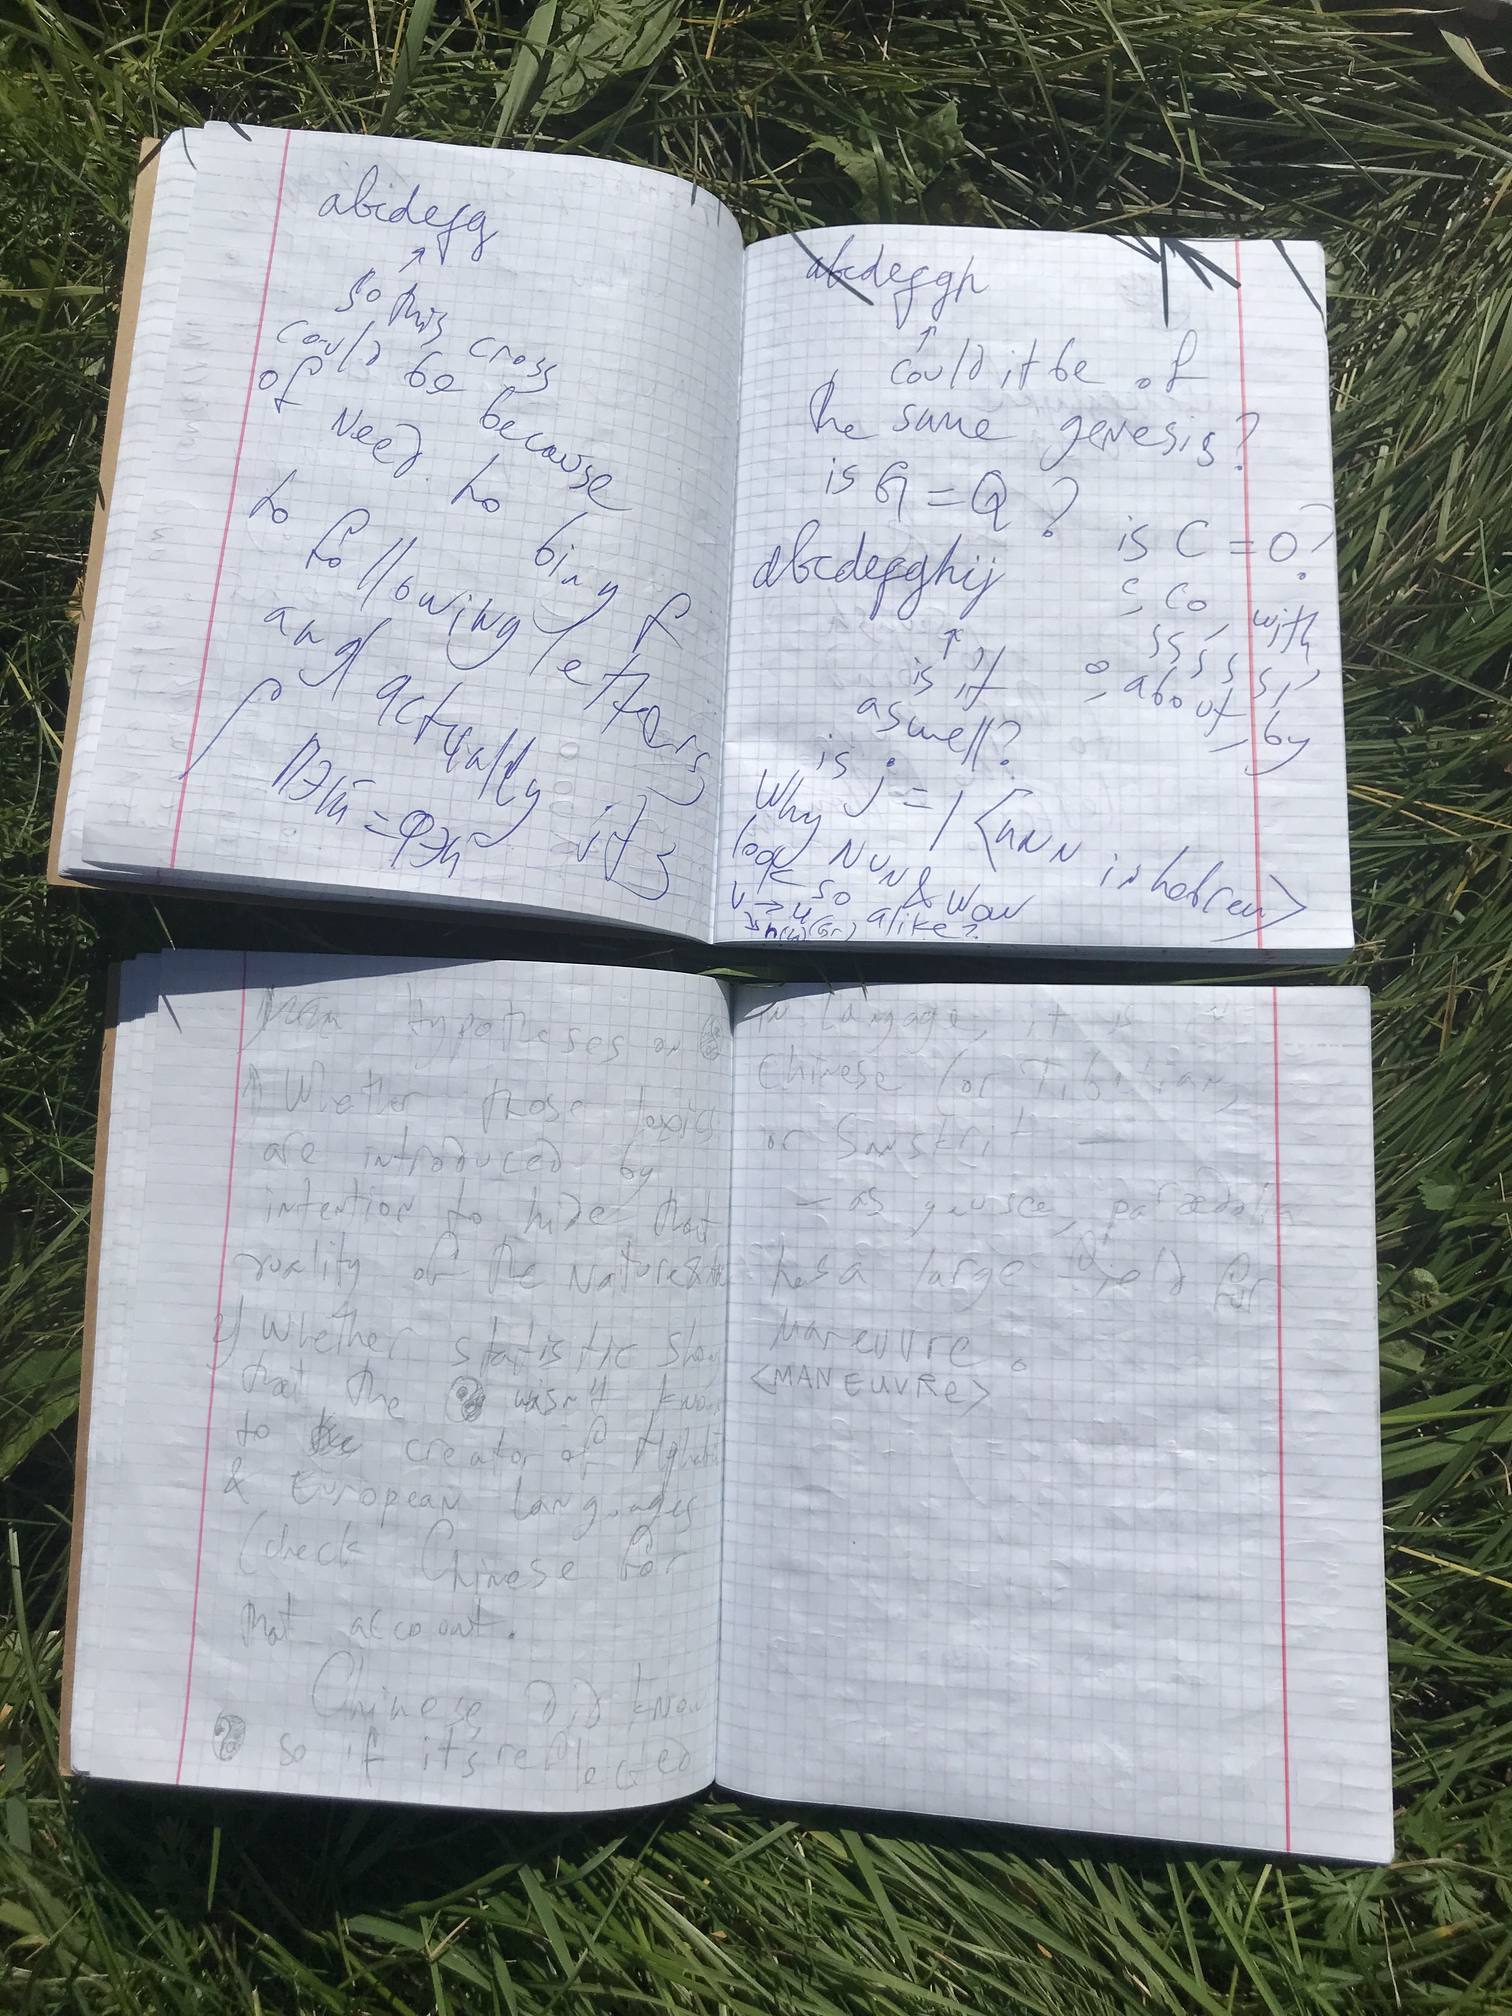 abcdefg
↑
so this cross
could be because
of need to bing f
to following letters
and actually it's
пэй = фэй
abcdefgh
↑
could it be of
the same genesis?
is G = Q ?
is C = O?
abcdefghij
↑
is it
aswell?
is j = l <nnn in hebrew>
Why
look NUN & Wow
so alike?
with
about, by
Hypotheses on
1) Whether those
are introduced by
intention to hide that
quality of the Nature
2) Whether statistic show
that the wasn't know
to the creator of
& European languages
(check Chinese for
that account.
Chinese did know
so if it's reflected
in langage, it is in
Chinese (or Tibitian,
or Sanskrit —
— as guisce,
has a large field for
Maneuvre.
<MANEUVRE>